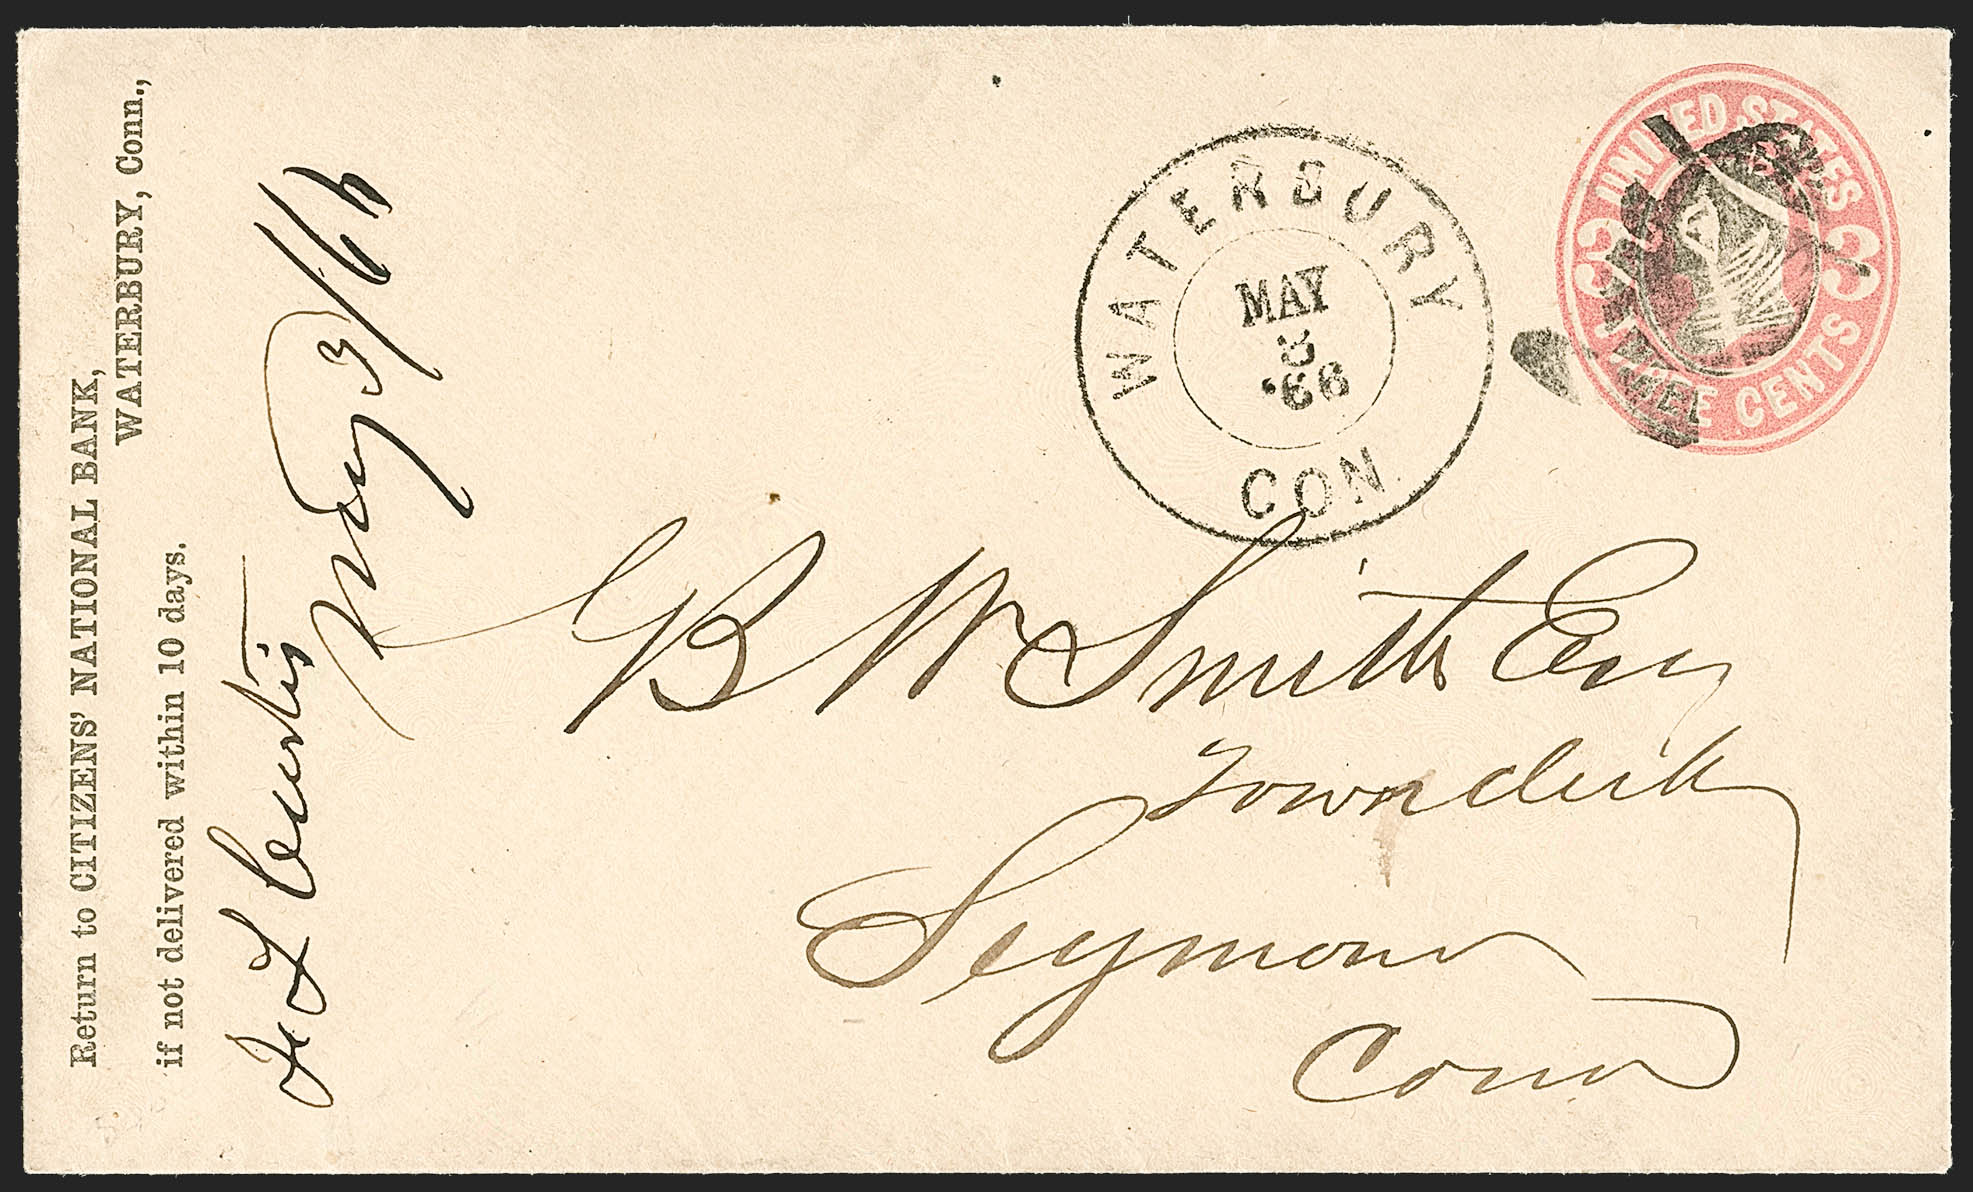 Return to CITIZENS' NATIONAL BANK,
WATERBURY, Conn.,
if not delivered within 10 days.
F L Curtis
May 3/66
WATERBURY
MAY
3
'66
CON
UNITED STATES
3 3
THREE CENTS
G B W Smith Esq
Town clerk
Seymour
Conn